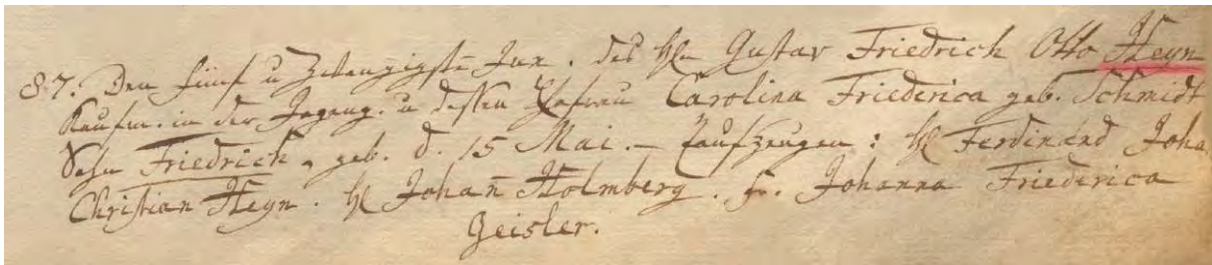 87. Den fünf u Zwanzigste Jun. des Hln Gustav Friedrich Otto Heyn
Kaufm. in der u dessen Ehefrau Carolina Friederica geb. Schmidt
Sohn Friedrich, geb. d. 15 Mai. – Taufzeugen: Hl Ferdinand Joha
Christian Heyn. Hl Johan̄ Holmberg. fr. Johanna Friederica
Geisler.